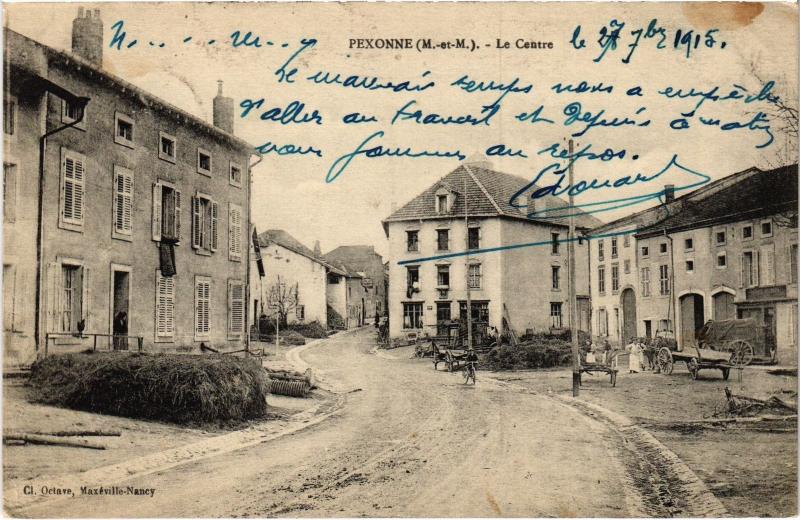 PEXONNE (M.-et-M.). - Le Centre
le 28 7bre 1915.
Le mauvais temps nous a empêché
d'aller au travail et depuis ce matin
nous sommes au repos.
Edouard
Cl. Octave, Maxéville-Nancy